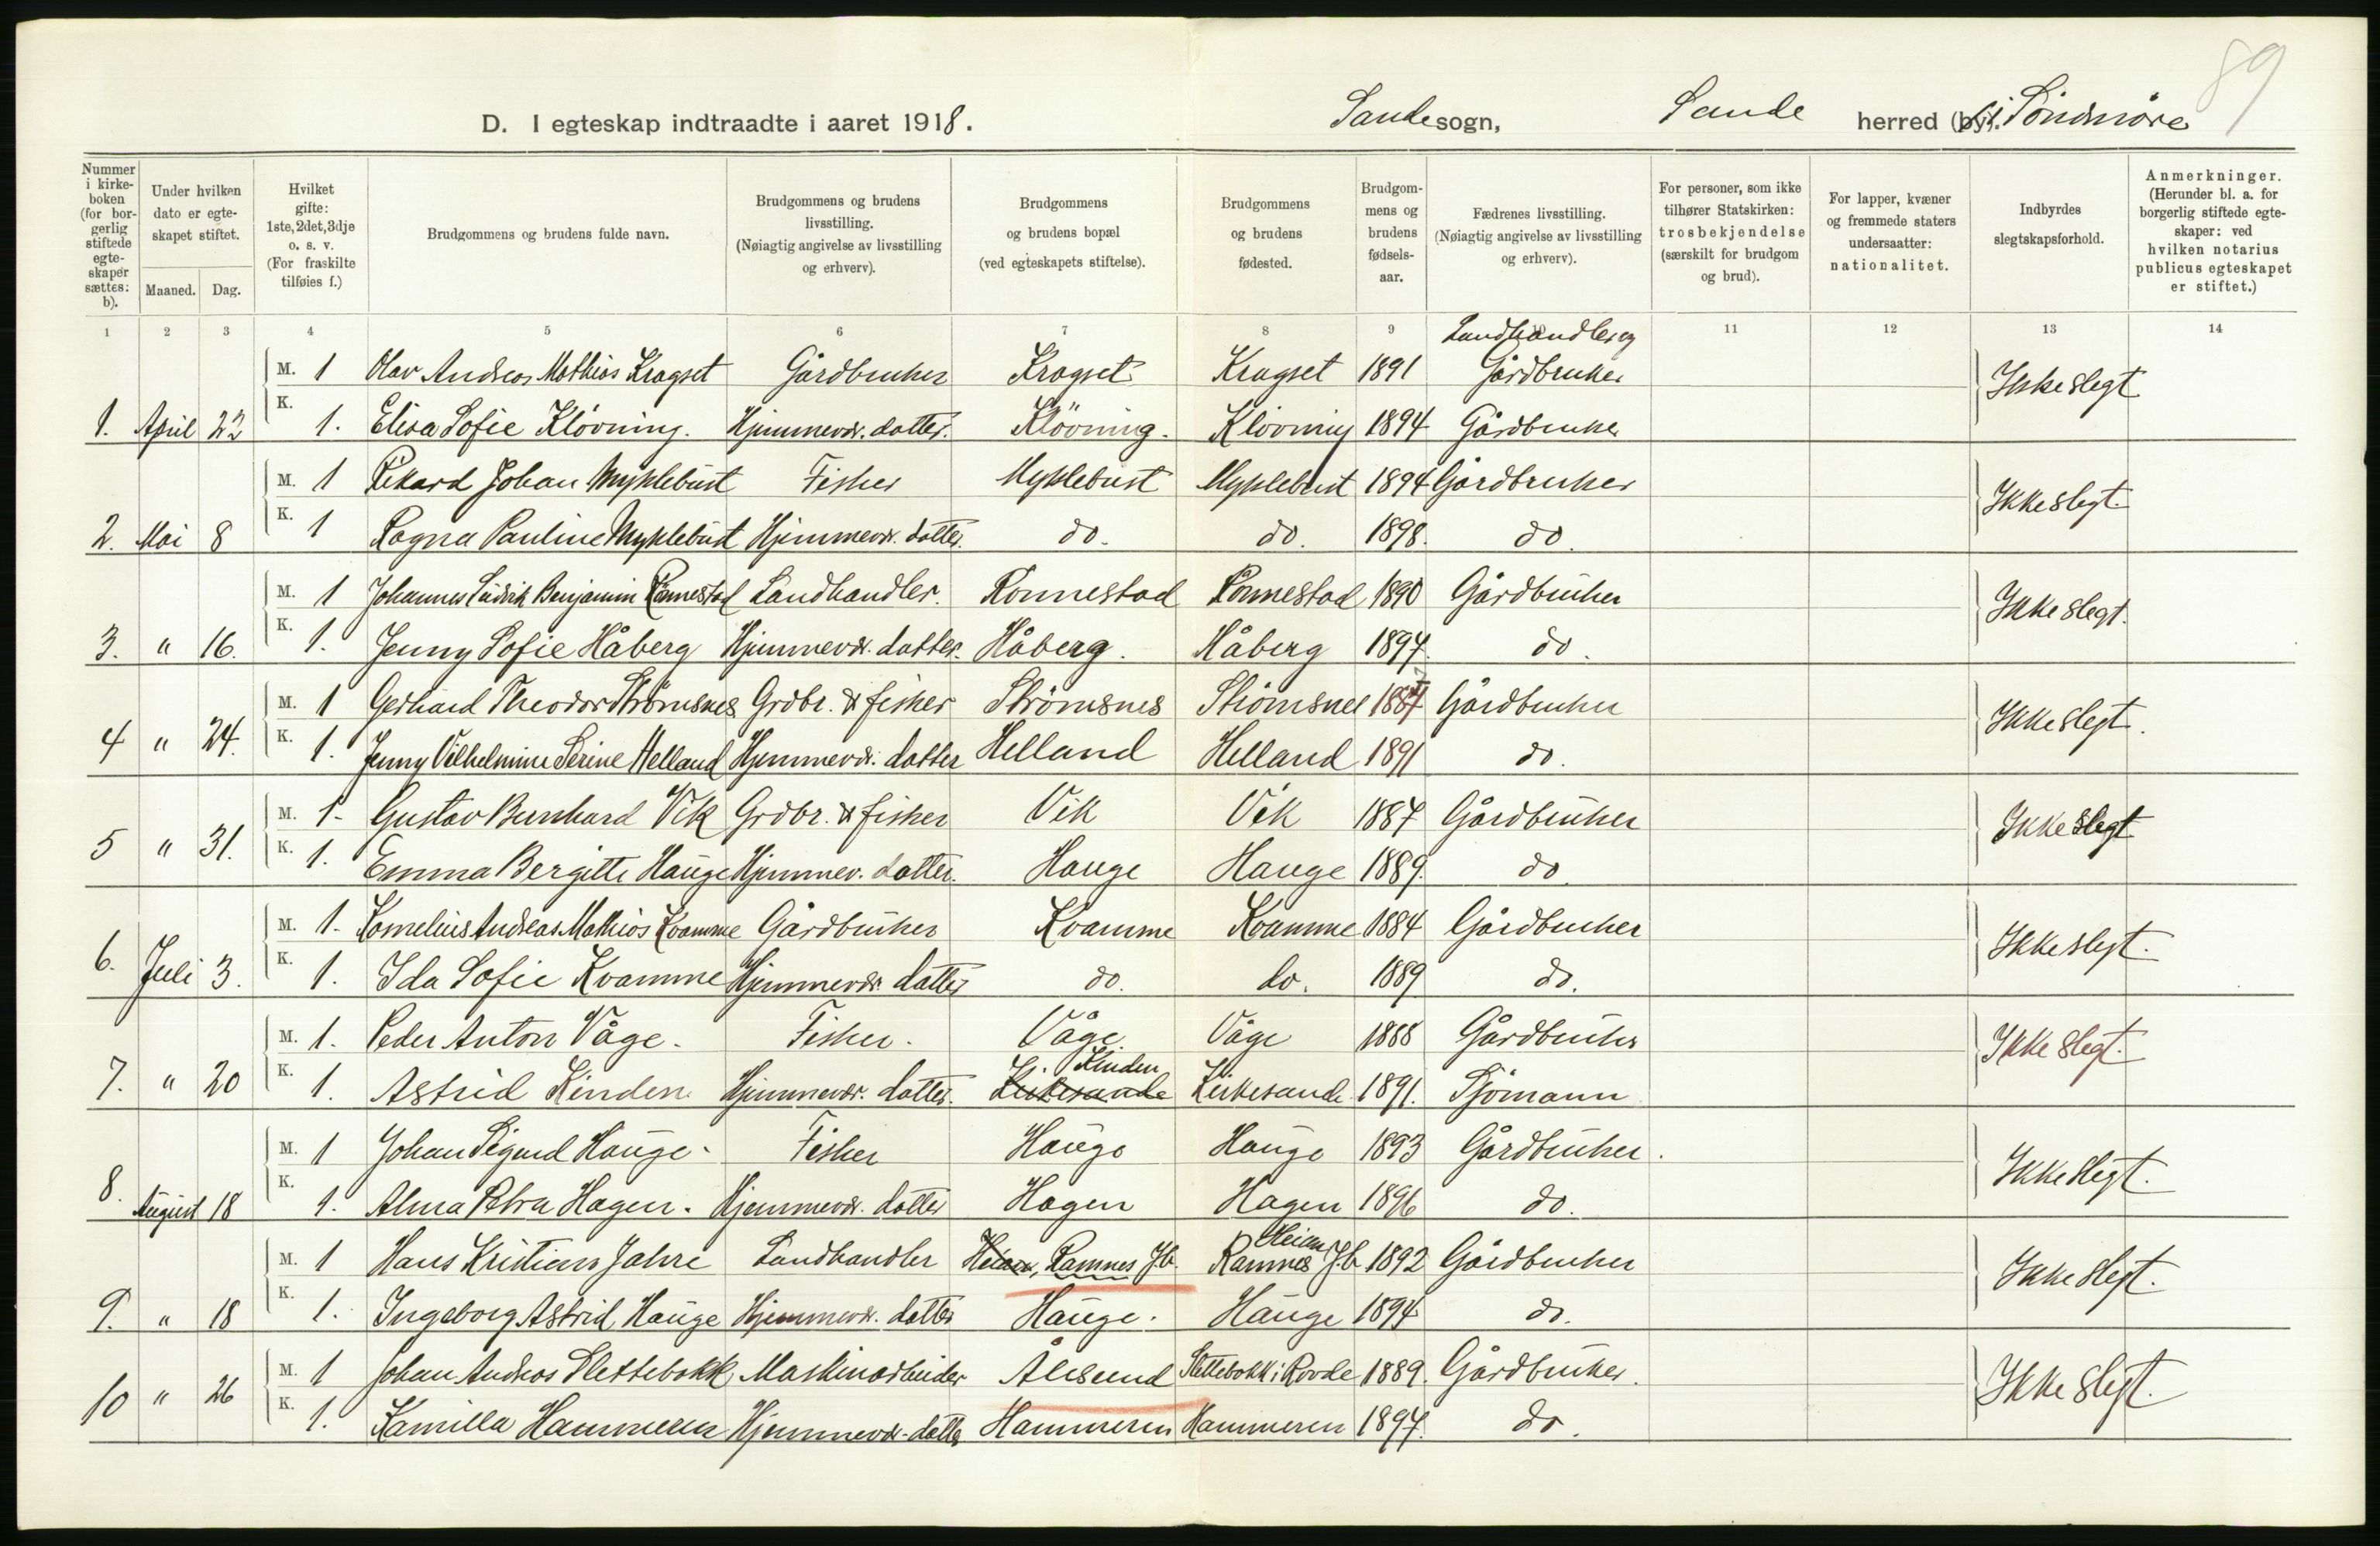 89
D. I egteskap indtraadte i aaret 1918. Sande sogn, Sande herred (by). i Söndmöre
Nummer i kirke-boken (for bor-gerlig stiftede egte-skaper sættes: b).
Under hvilken dato er egte-skapet stiftet.
Maaned. Dag.
Hvilket gifte: 1ste, 2det, 3dje o. s. v. (For fraskilte tilføies f.)
Brudgommens og brudens fulde navn.
Brudgommens og brudens livsstilling. (Nøiagtig angivelse av livsstilling og erhverv).
Brudgommens og brudens bopæl (ved egteskapets stiftelse).
Brudgommens og brudens fødested.
Brudgom-mens og brudens fødsels-aar.
Fædrenes livsstilling. (Nøiagtig angivelse av livsstilling og erhverv).
For personer, som ikke tilhører Statskirken: trosbekjendelse (særskilt for brudgom og brud).
For lapper, kvæner og fremmede staters undersaatter: nationalitet.
Indbyrdes slegtskapsforhold.
Anmerkninger. (Herunder bl. a. for borgerlig stiftede egte-skaper: ved hvilken notarius publicus egteskapet er stiftet.)
1 2 3 4 5 6 7 8 9 11 12 13 14
Landhandler og
M. 1 Olav Andreas Mathias Kragset Gårdbruker Kragset Kragset 1891 Gårdbruker Ikke slegt
1. April 22 K. 1. Elisa Sofie Klövning. Hjemmevr. datter. Klövning. Klövning 1894 Gårdbruker
M. 1 Rikard Johan Myklebust Fisker Myklebust Myklebust 1894 Gårdbruker Ikke slegt.
2. Mai 8 K. 1 Ragna Pauline Myklebust Hjemmevr. datter. do. do. 1898. do.
M. 1 Johannes Ludvik Benjamin Rønnestad Landhandler. Rønnestad Rønnestad 1890 Gårdbruker Ikke slegt.
3. " 16. K. 1. Jenny Sofie Håberg Hjemmevr. datter. Håberg. Håberg 1897. do.
M. 1 Gerhard Theodor Strømsnes Grdbr. & fisker Strømsnes Strømsnes 1887 Gårdbruker Ikke slegt.
4 " 24. K. 1. Jenny Vilhelmine Serine Helland Hjemmevr. datter Helland Helland 1891 do.
M. 1- Gustav Bernhard Vik Grdbr. & fisker Vik Vik 1887 Gårdbruker Ikke slegt
5 " 31. K. 1. Emma Bergitte Hauge Hjemmev. datter. Hauge Hauge 1889. do.
M. 1- Kornelius Andreas Mathias Kvamme Gårdbruker Kvamme Kvamme 1884 Gårdbruker Ikke slegt.
6. Juli 3. K. 1. Ida Sofie Kvamme Hjemmevr. datter do. do. 1889 do.
M. 1. Peder Anton Våge. Fisker. Våge. Våge 1888 Gårdbruker Ikke slegt.
Kinden
7. " 20 K. 1. Astrid Kinden Hjemmevr. datter. Kirkesande Kirkesande 1891. Sjömann
M. 1 Johan Sigurd Hauge. Fisker Hauge Hauge 1893 Gårdbruker. Ikke slegt.
8. August 18 K. 1. Alma Petra Hagen. Hjemmevr. datter Hagen Hagen 1896 do.
Heian
M. 1 Hans Kristian Jahre Landhandler Heian, Ramnes Jb. Ramnes Jb. 1892 Gårdbruker Ikke slegt.
9. " 18 K. 1. Ingeborg Astrid Hauge Hjemmevr. datter Hauge. Hauge 1894 do.
M. 1 Johan Andreas Slettebakk Maskinarbeider Ålesund Slettebakk i Rovde 1889. Gårdbruker. Ikke slegt.
10 " 26 K. 1. Kamilla Hammeren Hjemmevr. datter Hammeren Hammeren 1897. do.